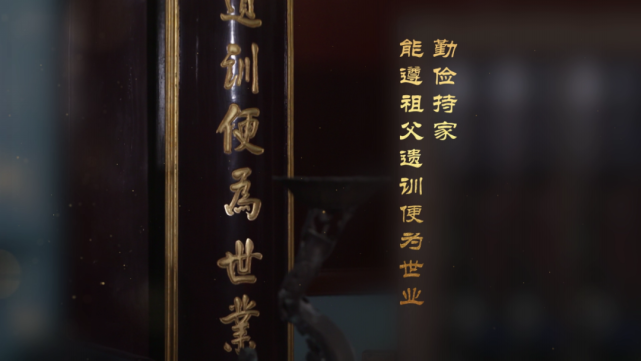 勤俭持家
能遵祖父遗训便为世业
遗训便為世業